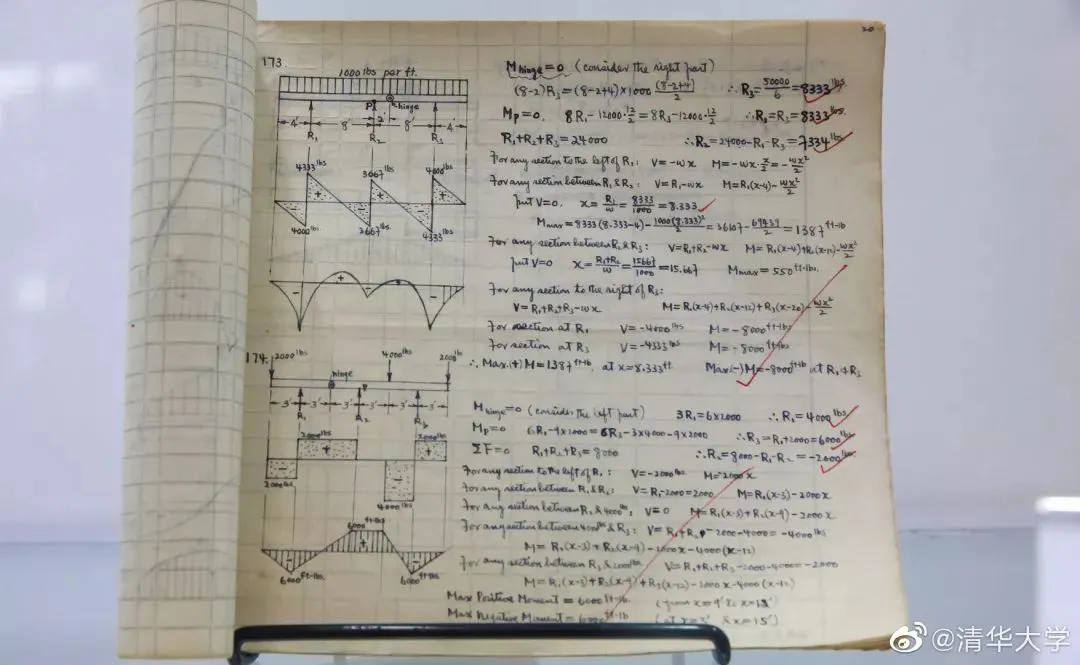 20
173.
1000 lbs per ft.
P
hinge
2'
4' 8' 8' 4'
R₁ R₂ R₃
4333 lbs 3667 lbs 4000 lbs
+ + +
- - -
4000 lbs 3667 lbs 4333 lbs
+
- - -
M hinge = 0 (consider the right part)
(8-2)R₃ = (8-2+4)×1000 (8-2+4)/2 ∴ R₃ = 50000/6 = 8333 lbs.
Mp = 0. 8R₁ - 12000·12/2 = 8R₃ - 12000·12/2 ∴ R₁ = R₃ = 8333 lbs.
R₁+R₂+R₃ = 24000 ∴ R₂ = 24000-R₁-R₃ = 7334 lbs.
For any section to the left of R₁: V = -wx M = -wx·x/2 = -wx²/2
For any section between R₁ & R₂: V = R₁-wx M = R₁(x-4) - wx²/2
put V=0. x = R₁/w = 8333/1000 = 8.333
Mmax = 8333(8.333-4) - 1000(8.333)²/2 = 36107 - 69439/2 = 1387 ft-lb
For any section between R₂ & R₃: V = R₁+R₂-wx M = R₁(x-4)+R₂(x-12)-wx²/2
put V=0 x = R₁+R₂/w = 15667/1000 = 15.667 Mmax = 550 ft-lbs.
For any section to the right of R₃:
V = R₁+R₂+R₃-wx M = R₁(x-4)+R₂(x-12)+R₃(x-20)-wx²/2
For section at R₁ V = -4000 lbs M = -8000 ft-lbs
For section at R₃ V = -4333 lbs M = -8000 ft-lbs
∴ Max.(+) M = 1387 ft-lb. at x = 8.333 ft. Max(-) M = -8000 ft-lb at R₁ & R₃
174.
2000 lbs 4000 lbs 2000 lb
hinge
P
3' 3' 3' 3' 3' 3'
R₁ R₂ R₃
2000 lbs 2000 lbs
+ +
- -
2000 lbs 4000 lbs
6000 ft-lbs
+
- -
6000 ft-lbs. 6000 ft-lbs
M hinge = 0 (consider the left part) 3R₁ = 6×2000 ∴ R₁ = 4000 lbs
Mp = 0 6R₁-9×2000 = 6R₃-3×4000-9×2000 ∴ R₃ = R₁+2000 = 6000 lbs
ΣF = 0 R₁+R₂+R₃ = 8000 ∴ R₂ = 8000-R₁-R₂ = -2000 lbs
For any section to the left of R₁: V = -2000 lbs M = -2000x
For any section between R₁ & R₂: V = R₁-2000 = 2000 M = R₁(x-3)-2000x
For any section between R₂ & 4000 lbs, V = 0 M = R₁(x-3)+R₂(x-9)-2000x
For any section between 4000 lbs & R₃: V = R₁+R₂-2000-4000 = -4000 lbs
M = R₁(x-3)+R₂(x-9)-2000x-4000(x-12)
For any section between R₃ & 2000 lbs V = R₁+R₂+R₃-2000-4000 = 2000
M = R₁(x-3)+R₂(x-9)+R₃(x-15)-2000x-4000(x-12)
Max Positive Moment = 6000 ft-lb. (from x=9' to x=12')
Max Negative Moment = 6000 ft-lb (at x=3' & x=15')
@清华大学